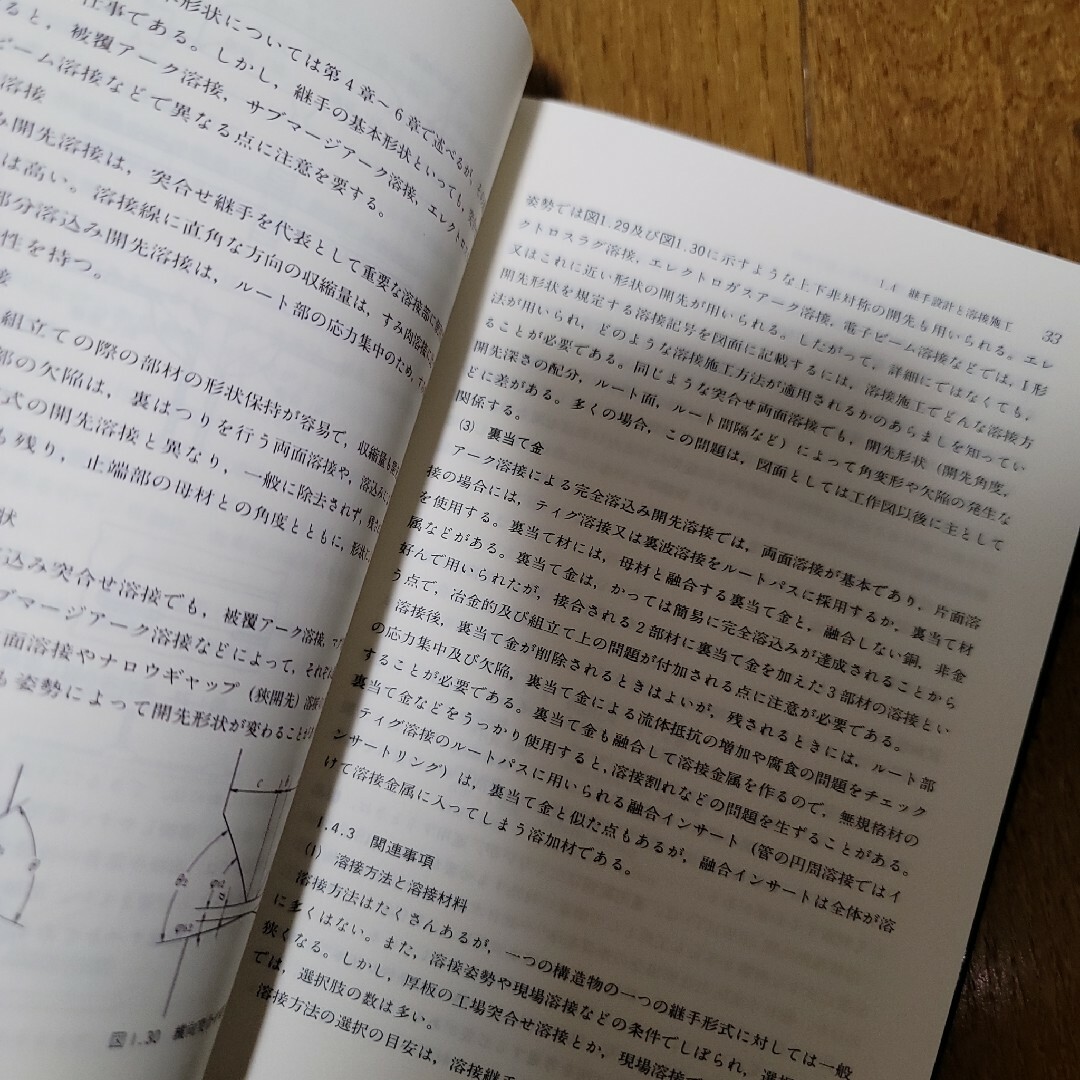 本形状については第4章～6章で述べるが，
仕事である。しかし，継手の基本形状といっても，
ると，被覆アーク溶接，サブマージアーク溶接，エレクトロ
ビーム溶接などで異なる点に注意を要する。
溶接
み開先溶接は，突合せ継手を代表として重要な溶接部に
は高い。溶接線に直角な方向の収縮量は，すみ肉溶接に
部分溶込み開先溶接は，ルート部の応力集中のため，
性を持つ。
接
組立ての際の部材の形状保持が容易で，収縮量も
部の欠陥は，裏はつりを行う両面溶接や，溶込みに
式の開先溶接と異なり，一般に除去されず，
も残り，止端部の母材との角度とともに，形状
状
込み突合せ溶接でも，被覆アーク溶接，マグ
ブマージアーク溶接などによって，それぞれ
面溶接やナロウギャップ（狭開先）溶接
も姿勢によって開先形状が変わることが
図1.30
1.4 継手設計と溶接施工 33
姿勢では図1.29及び図1.30に示すような上下非対称の開先も用いられる。エレ
クトロスラグ溶接，エレクトロガスアーク溶接，電子ビーム溶接などでは，I形
又はこれに近い形状の開先が用いられる。したがって，詳細にではなくても，
開先形状を規定する溶接記号を図面に記載するには，溶接施工でどんな溶接方
法が用いられ，どのような溶接施工方法が適用されるかのあらましを知ってい
ることが必要である。同じような突合せ両面溶接でも，開先形状（開先角度，
開先深さの配分，ルート面，ルート間隔など）によって角変形や欠陥の発生な
どに差がある。多くの場合，この問題は，図面としては工作図以後に主として
関係する。
(3) 裏当て金
アーク溶接による完全溶込み開先溶接では，両面溶接が基本であり，片面溶
接の場合には，ティグ溶接又は裏波溶接をルートパスに採用するか，裏当て材
を使用する。裏当て材には，母材と融合する裏当て金と，融合しない銅，非金
属などがある。裏当て金は，かつては簡易に完全溶込みが達成されることから
好んで用いられたが，接合される2部材に裏当て金を加えた3部材の溶接とい
う点で，冶金的及び組立て上の問題が付加される点に注意が必要である。
溶接後，裏当て金が削除されるときはよいが，残されるときには，ルート部
の応力集中及び欠陥，裏当て金による流体抵抗の増加や腐食の問題をチェック
することが必要である。裏当て金も融合して溶接金属を作るので，無規格材の
裏当て金などをうっかり使用すると，溶接割れなどの問題を生ずることがある。
ティグ溶接のルートパスに用いられる融合インサート（管の円周溶接ではイ
ンサートリング）は，裏当て金と似た点もあるが，融合インサートは全体が溶
けて溶接金属に入ってしまう溶加材である。
1.4.3 関連事項
(1) 溶接方法と溶接材料
溶接方法はたくさんあるが，一つの構造物の一つの継手形式に対しては一般
に多くはない。また，溶接姿勢や現場溶接などの条件でしぼられ，選択
狭くなる。しかし，厚板の工場突合せ溶接とか，現場溶接
では，選択肢の数は多い。
溶接方法の選択の目安は，溶接継手